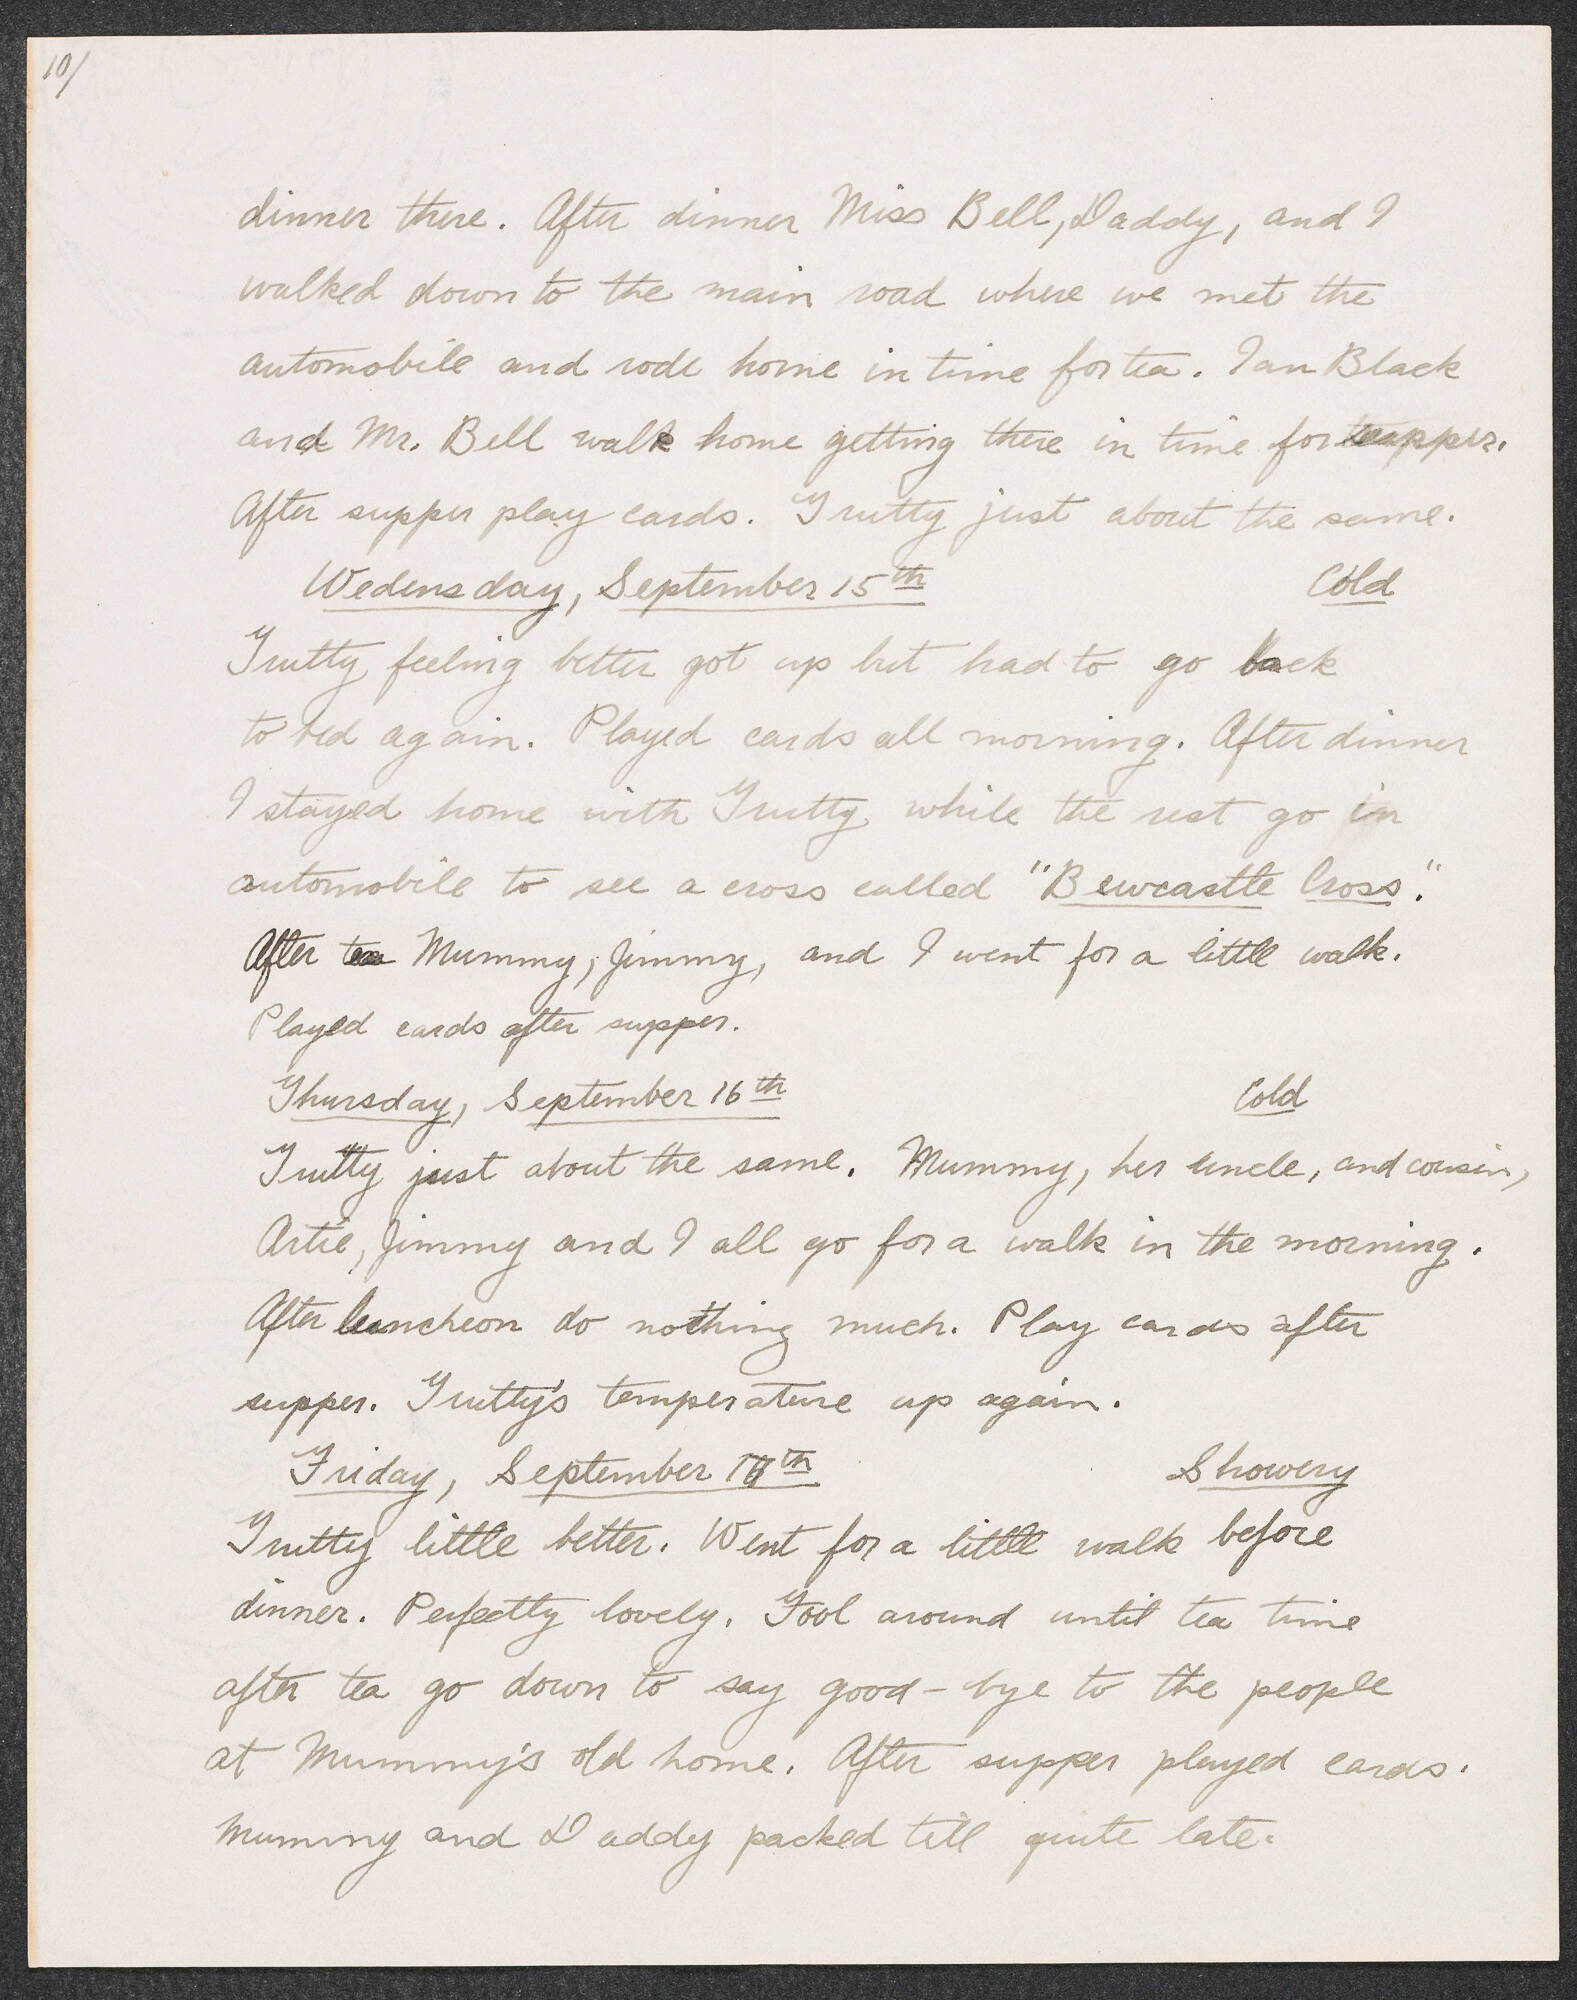 10/
dinner there. After dinner Miss Bell, Daddy, and I
walked down to the main road where we met the
automobile and rode home in time for tea. Ian Black
and Mr. Bell walk home getting there in time for supper.
After supper play cards. Trutty just about the same.
Wedensday, September 15th Cold
Trutty feeling better got up but had to go back
to bed again. Played cards all morning. After dinner
I stayed home with Trutty while the rest go in
automobile to see a cross called "Bewcastle Cross".
After tea Mummy, Jimmy, and I went for a little walk.
Played cards after supper.
Thursday, September 16th Cold
Trutty just about the same. Mummy, her uncle, and cousin,
Artie, Jimmy and I all go for a walk in the morning.
After luncheon do nothing much. Play cards after
supper. Trutty's temperature up again.
Friday, September 17th Showery
Trutty little better. Went for a little walk before
dinner. Perfectly lovely. Fool around until tea time
after tea go down to say good-bye to the people
at Mummy's old home. After supper played cards.
Mummy and Daddy packed till quite late.